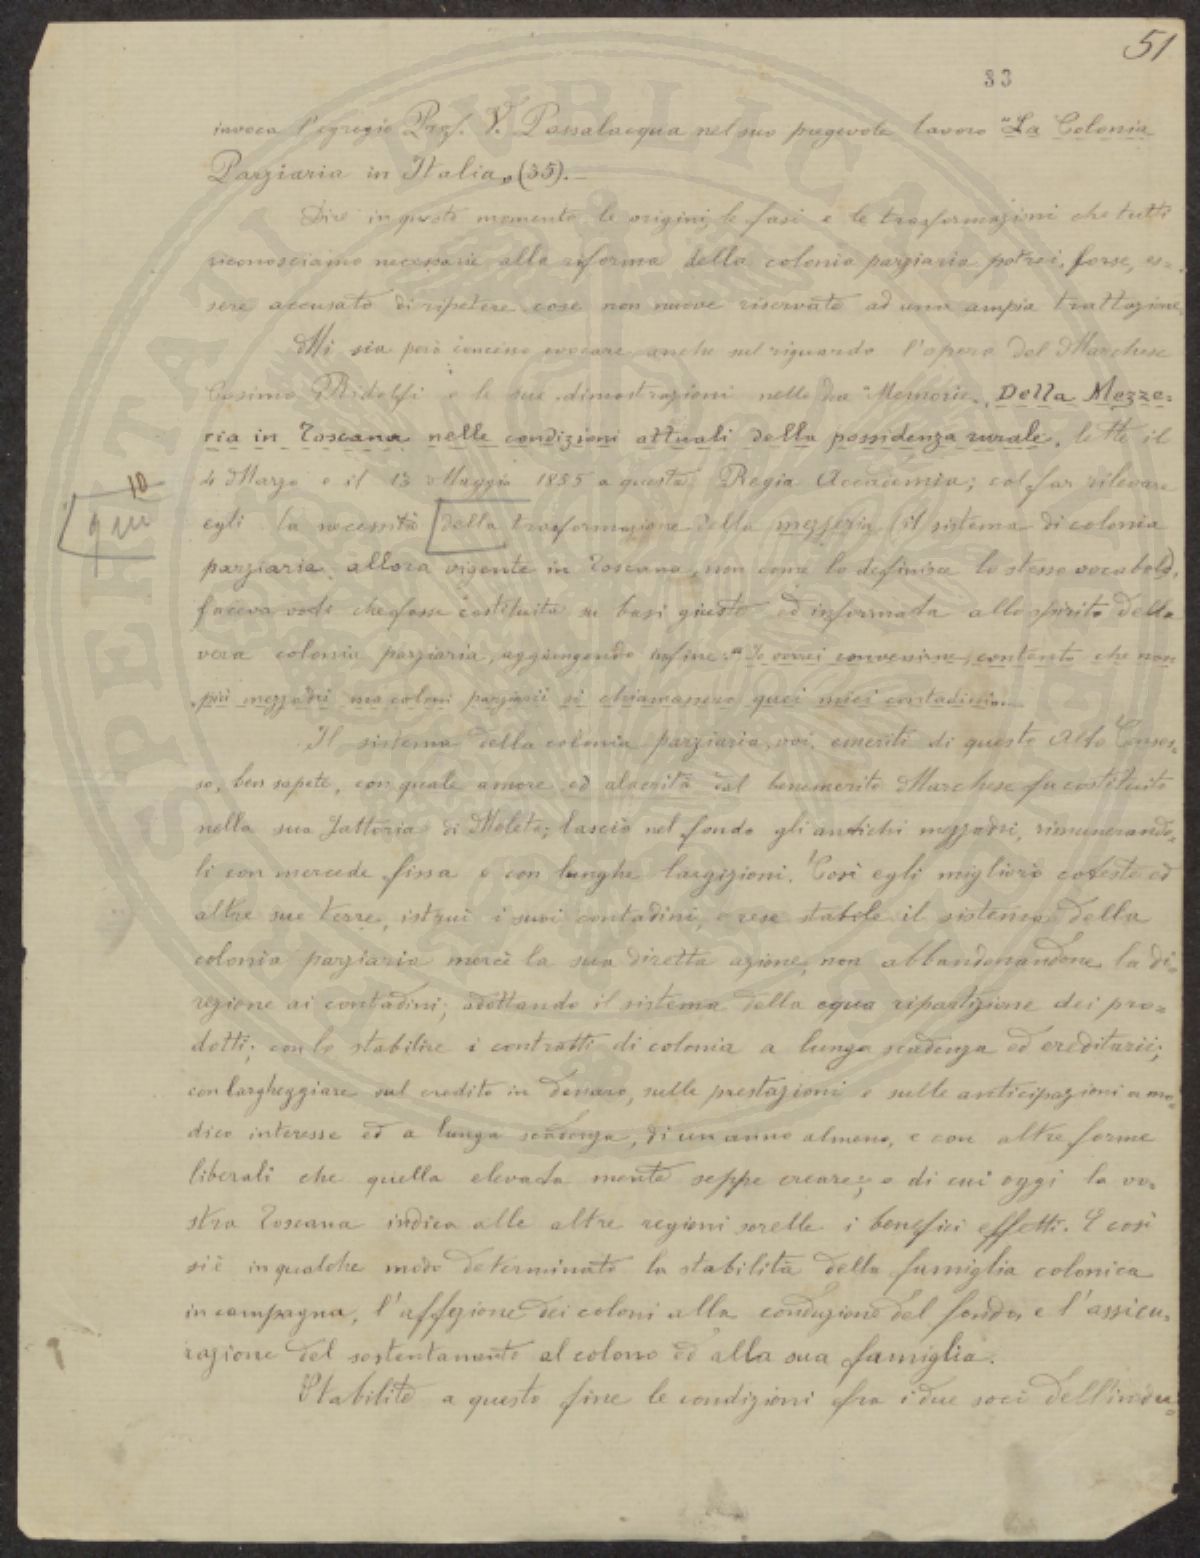 51
33
invoca l'egregio Prof. V. Passalacqua nel suo pregevole lavoro "La Colonia
Parziaria in Italia„ (35).—
Dire in questo momento le origini, le fasi e le trasformazioni che tutti
riconosciamo necessarie alla riforma della colonia parziaria potrei, forse, es-
sere accusato di ripetere cose non nuove riservate ad una ampia trattazione.
Mi sia però concesso evocare anche nel riguardo l'opera del Marchese
Cosimo Ridolfi e le sue dimostrazioni nelle due "Memorie„ Della Mezze-
ria in Toscana nelle condizioni attuali della possidenza rurale, lette il
4 Marzo e il 13 Maggio 1855 a questa Regia Accademia; col far rilevare
10
qui
egli la necessità della trasformazione della mezzeria (il sistema di colonia
parziaria allora vigente in Toscana, non come lo definisce lo stesso vocabolo),
faceva voti che fosse costituita su basi giuste ed informata allo spirito della
vera colonia parziaria, aggiungendo infine: "Io vorrei convenirne, contento che non
più mezzadri ma coloni parziarii si chiamassero quei miei contadini„.—
Il sistema della colonia parziaria, voi, emeriti di questo Alto Conses-
so, ben sapete, con quale amore ed alacrità dal benemerito Marchese fu costituito
nella sua Fattoria di Meleto; lasciò nel fondo gli antichi mezzadri, rimunerando-
li con mercede fissa e con lunghe largizioni. Così egli migliorò coteste ed
altre sue terre, istruì i suoi contadini, e rese stabile il sistema della
colonia parziaria mercè la sua diretta azione, non abbandonandone la di-
rezione ai contadini; adottando il sistema della equa ripartizione dei pro-
dotti; con lo stabilire i contratti di colonia a lunga scadenza ed ereditarii;
con largheggiare sul credito in denaro, sulle prestazioni e sulle anticipazioni a mo-
dico interesse ed a lunga scadenza, di un anno almeno, e con altre forme
liberali che quella elevata mente seppe creare; e di cui oggi la vo-
stra Toscana indica alle altre regioni sorelle i benefici effetti. E così
si è in qualche modo determinato la stabilità della famiglia colonica
in campagna, l'affezione dei coloni alla conduzione del fondo, e l'assicu-
razione del sostentamento al colono ed alla sua famiglia.
Stabilite a questo fine le condizioni fra i due soci dell'indu-